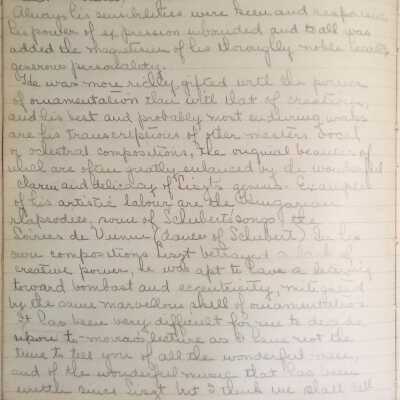 Always his sensibilities were keen and responsive
his power of expression unbounded and to all was
added the magnetism of his thoroughly noble hearted
generous personality.
He was more richly gifted with the power
of ornamentation than with that of creation,
and his best and probably most enduring works
are his transcriptions of other masters vocal
or orchestral compositions, the original beauties of
which are often greatly enhanced by the wonderful
charm and delicacy of Liszt's genius. Examples
of his artistic labour are the Hungarian
rhapsodies, some of Schubert songs, the
Soirees de Vienne (dances of Schubert) In his
own compositions Liszt betrayed a lack of
creative power, he was apt to have a leaning
toward bombast and eccentricity, mitigated
by the same marvellous skill of ornamentation.
It has been very difficult for me to decide
upon to-morrow's lecture as I have not the
time to tell you of all the wonderful men,
and of the wonderful music that has been
written since Liszt but I think we shall tell